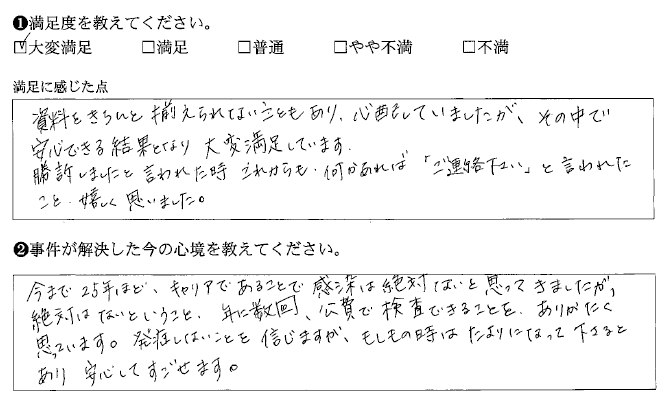 ❶満足度を教えてください。
☑大変満足 □満足 □普通 □やや不満 □不満
満足に感じた点
資料をきちんと揃えられてないこともあり、心配していましたが、その中で
安心できる結果となり 大変満足しています。
勝訴しましたと言われた時 これからも、何かあれば「ご連絡下さい」と言われた
こと、嬉しく思いました。
❷事件が解決した今の心境を教えてください。
今まで25年ほど、キャリアであることで感染は絶対ないと思ってきましたが、
絶対はないということ、年に数回、公費で検査できることを、ありがたく
思っています。発症しないことを信じますが、もしもの時はたよりになって下さると
あり 安心してすごせます。